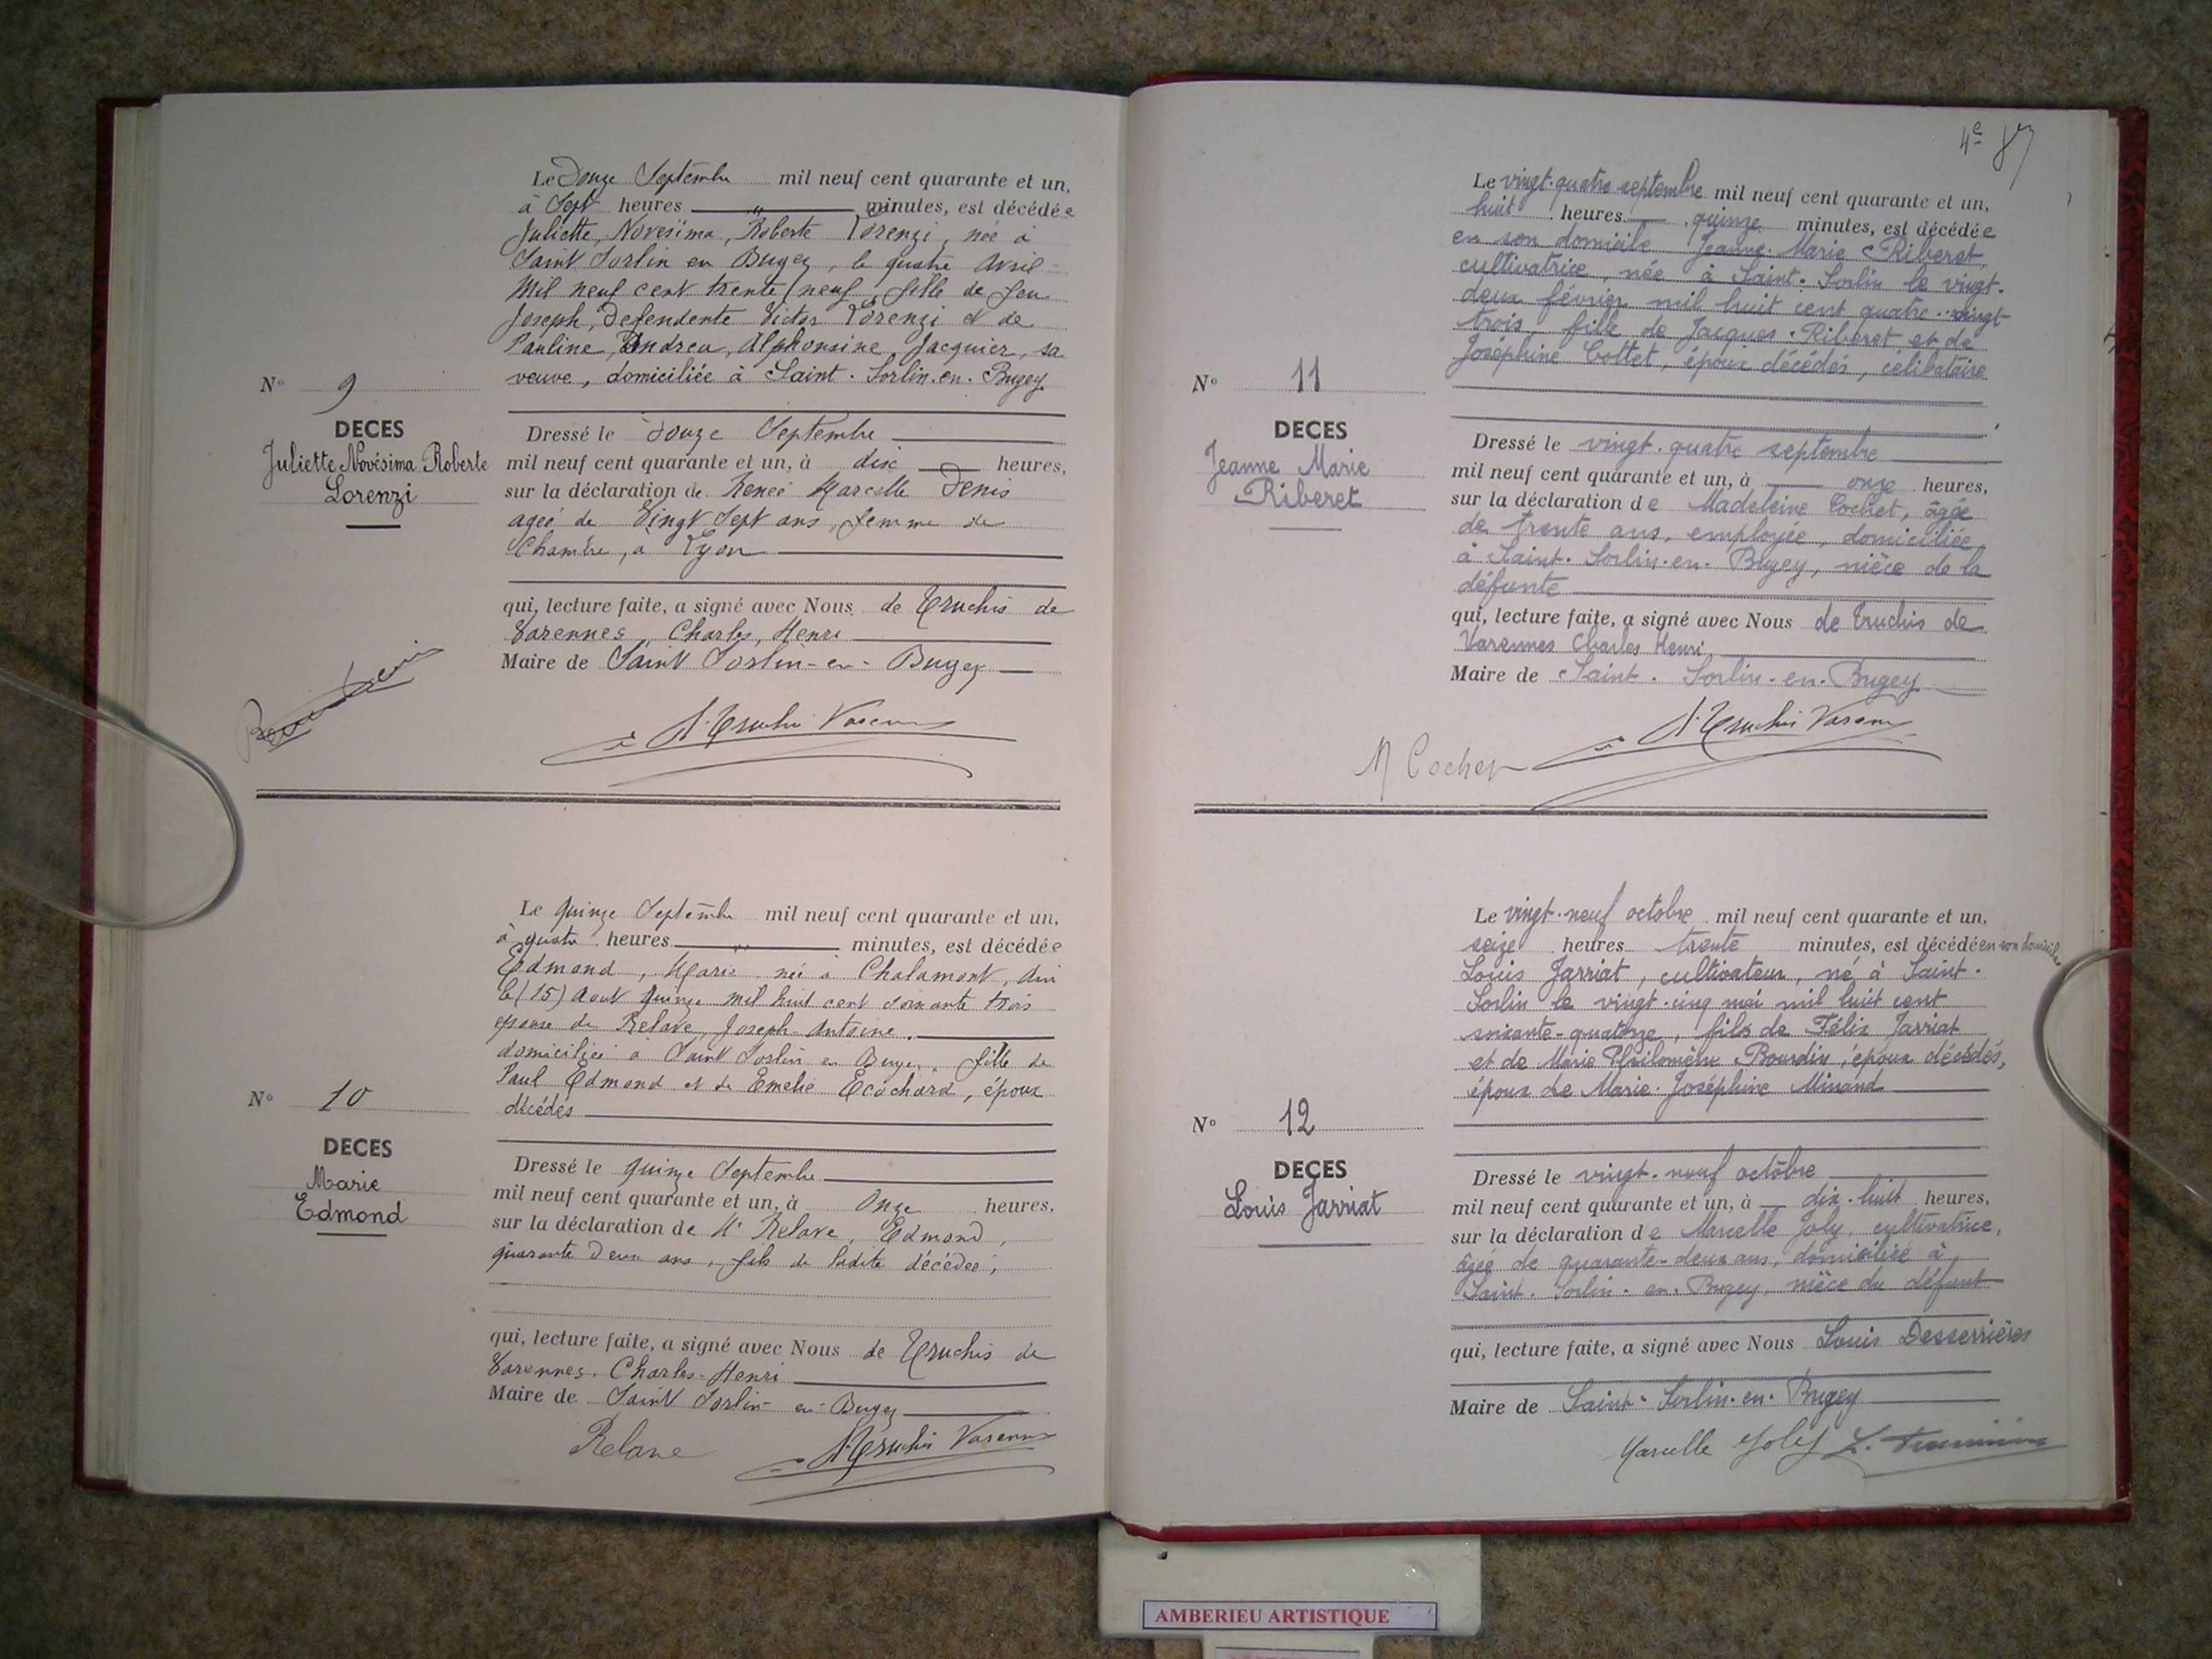 Le Douze Septembre mil neuf cent quarante et un,
à Sept heures " minutes, est décédée
Juliette, Novésima, Roberte Lorenzi, née à
Saint Sorlin en Bugey, le quatre Avril
Mil neuf cent trente neuf, fille de feu
Joseph, Defendente Victor Lorenzi et de
Pauline, Andréa, Alphonsine Jacquier, sa
veuve, domiciliée à Saint. Sorlin. en. Bugey
N° 9
DECES
Juliette Novésima Roberte
Lorenzi
Dressé le douze Septembre
mil neuf cent quarante et un, à dix heures,
sur la déclaration de Renée Marcelle Denis
agée de Vingt Sept ans, femme de
Chambre, à Lyon
qui, lecture faite, a signé avec Nous de Truchis de
Varennes, Charles, Henri
Maire de Saint Sorlin-en-Bugey
Le quinze Septembre mil neuf cent quarante et un,
à quatre heures " minutes, est décédée
Edmond, Marie née à Chalamont, Ain
le (15) Aout quinze mil huit cent soixante trois
epouse de Relave, Joseph-Antoine,
domiciliée à Saint Sorlin en Bugey, fille de
Paul Edmond et de Emelie Ecochard, époux
décédés
N° 10
DECES
Marie
Edmond
Dressé le quinze Septembre
mil neuf cent quarante et un, à Onze heures,
sur la déclaration de Mr Relave, Edmond,
quarante deux ans, fils de ladite décédée,
qui, lecture faite, a signé avec Nous de Truchis de
Varennes, Charles-Henri
Maire de Saint Sorlin-en-Bugey
Relave
4e
Le vingt. quatre septembre mil neuf cent quarante et un,
huit heures quinze minutes, est décédée
en son domicile Jeanne. Marie Riberet,
cultivatrice, née à Saint. Sorlin le vingt.
deux février mil huit cent quatre. vingt
trois, fille de Jacques. Riberet et de
Joséphine Cottet, époux décédés, célibataire
N° 11
DECES
Jeanne Marie
Riberet
Dressé le vingt. quatre septembre
mil neuf cent quarante et un, à onze heures,
sur la déclaration de Madeleine Cochet, âgée
de trente ans, employée, domiciliée
à Saint. Sorlin. en. Bugey, nièce de la
défunte
qui, lecture faite, a signé avec Nous de Truchis de
Varennes Charles Henri
Maire de Saint. Sorlin. en. Bugey
M Cochet
Le vingt. neuf octobre mil neuf cent quarante et un,
seize heures trente minutes, est décédé en son domicile
Louis Jarriat, cultivateur, né à Saint.
Sorlin le vingt. cinq mai mil huit cent
soixante-quatorze, fils de Félix Jarriat
et de Marie Philomène Bourdin, époux décédés,
époux de Marie. Joséphine Minand
N° 12
DECES
Louis Jarriat
Dressé le vingt. neuf octobre
mil neuf cent quarante et un, à dix. huit heures,
sur la déclaration de Marcelle Joly, cultivatrice,
âgée de quarante-deux ans, domiciliée à
Saint. Sorlin. en. Bugey, nièce du défunt
qui, lecture faite, a signé avec Nous Louis Desserrières
Maire de Saint. Sorlin. en. Bugey
Marcelle Joly
AMBERIEU ARTISTIQUE